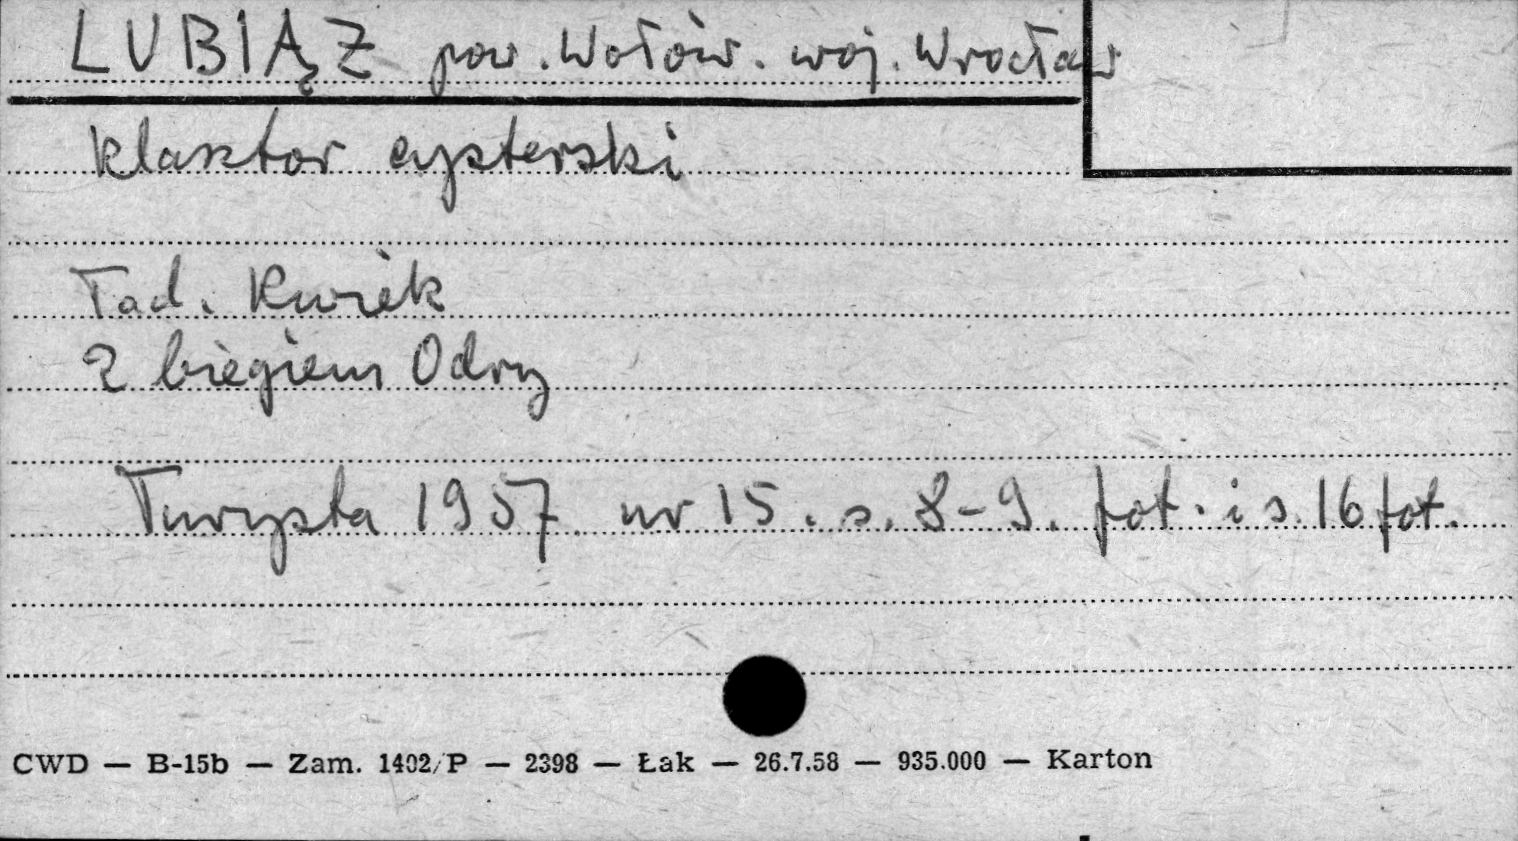 LUBIĄŻ pow. Wołów. woj. Wrocław
klasztor cysterski
Tad. Kwiek
Z biegiem Odry
Turysta 1957 nr 15. s. 8-9. fot. i s. 16 fot.
CWD — B-15b — Zam. 1402/P — 2398 — Łąk — 26.7.58 — 935.000 — Karton